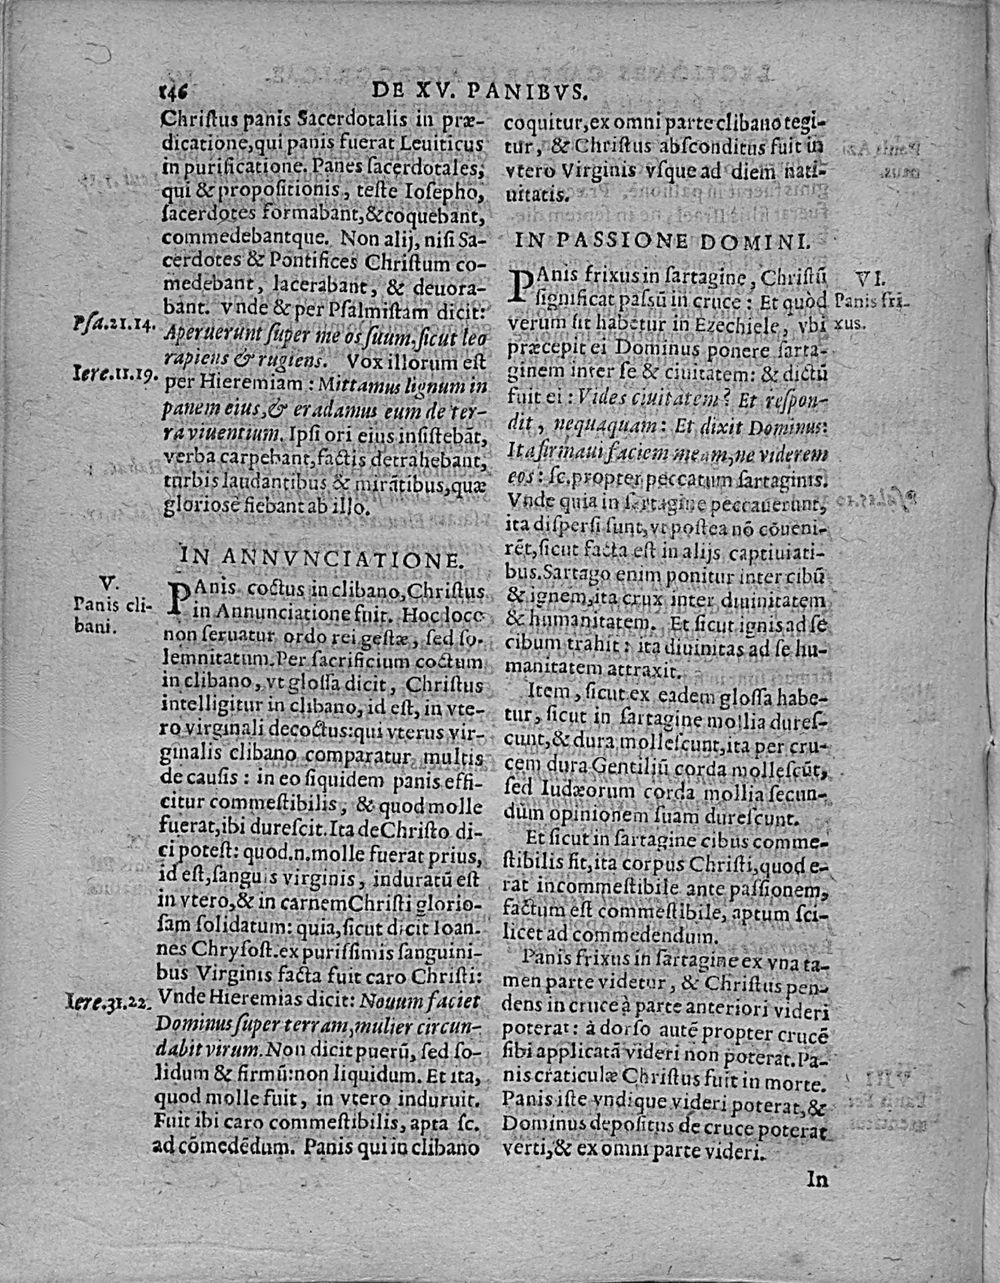 146
DE XV. PANIBVS.
Christus panis Sacerdotalis in præ-
dicatione, qui panis fuerat Leuiticus
in purificatione. Panes sacerdotales,
qui & propositionis, teste Iosepho,
sacerdotes formabant, & coquebant,
commedebantque. Non alij, nisi Sa-
cerdotes & Pontifices Christum co-
medebant, lacerabant, & deuora-
bant. vnde & per Psalmistam dicit:
Psa.21.14.
Aperuerunt super me os suum, sicut leo
rapiens & rugiens. Vox illorum est
Iere.11.19.
per Hieremiam: Mittamus lignum in
panem eius, & eradamus eum de ter-
ra viuentium. Ipsi ori eius insistebāt,
verba carpebant, factis detrahebant,
turbis laudantibus & mirātibus, quæ
gloriose fiebant ab illo.
IN ANNVNCIATIONE.
V.
Panis cli-
bani.
PAnis coctus in clibano, Christus
in Annunciatione fuit. Hoc loco
non seruatur ordo rei gestæ, sed so-
lemnitatum. Per sacrificium coctum
in clibano, vt glossa dicit, Christus
intelligitur in clibano, id est, in vte-
ro virginali decoctus: qui vterus vir-
ginalis clibano comparatur multis
de causis: in eo siquidem panis effi-
citur commestibilis, & quod molle
fuerat, ibi durescit. Ita de Christo di-
ci potest: quod.n. molle fuerat prius,
id est, sanguis virginis, induratū est
in vtero, & in carnem Christi glorio-
sam solidatum: quia, sicut dicit Ioan.
nes Chrysost. ex purissimis sanguini-
bus Virginis facta fuit caro Christi:
Iere.31.22.
Vnde Hieremias dicit: Nouum faciet
Dominus super terram, mulier circun-
dabit virum. Non dicit puerū, sed so-
lidum & firmū: non liquidum. Et ita,
quod molle fuit, in vtero induruit.
Fuit ibi caro commestibilis, apta sc.
ad cōmedēdum. Panis qui in clibano
coquitur, ex omni parte clibano tegi-
tur, & Christus absconditus fuit in
vtero Virginis vsque ad diem nati-
uitatis.
IN PASSIONE DOMINI.
VI.
Panis fri-
xus.
PAnis frixus in sartagine, Christū
significat passū in cruce: Et quòd
verum sit habetur in Ezechiele, vbi
præcepit ei Dominus ponere sarta-
ginem inter se & ciuitatem: & dictū
fuit ei: Vides ciuitatem? Et respon-
dit, nequaquam: Et dixit Dominus:
Ita firmaui faciem meam, ne viderem
eos: sc. propter peccatum sartaginis.
Vnde quia in sartagine peccauerunt,
ita dispersi sunt, vt postea nō cōueni-
rēt, sicut facta est in alijs captiuiati-
bus. Sartago enim ponitur inter cibū
& ignem, ita crux inter diuinitatem
& humanitatem. Et sicut ignis ad se
cibum trahit: ita diuinitas ad se hu-
manitatem attraxit.
Item, sicut ex eadem glossa habe-
tur, sicut in sartagine mollia dures-
cunt, & dura mollescunt, ita per cru-
cem dura Gentiliū corda mollescūt,
sed Iudæorum corda mollia secun-
dùm opinionem suam durescunt.
Et sicut in sartagine cibus comme-
stibilis fit, ita corpus Christi, quod e-
rat incommestibile ante passionem,
factum est commestibile, aptum sci-
licet ad commedendum.
Panis frixus in sartagine ex vna ta-
men parte videtur, & Christus pen-
dens in cruce à parte anteriori videri
poterat: à dorso autē propter crucē
sibi applicatā videri non poterat. Pa-
nis craticulæ Christus fuit in morte.
Panis iste vndique videri poterat, &
Dominus depositus de cruce poterat
verti, & ex omni parte videri.
In